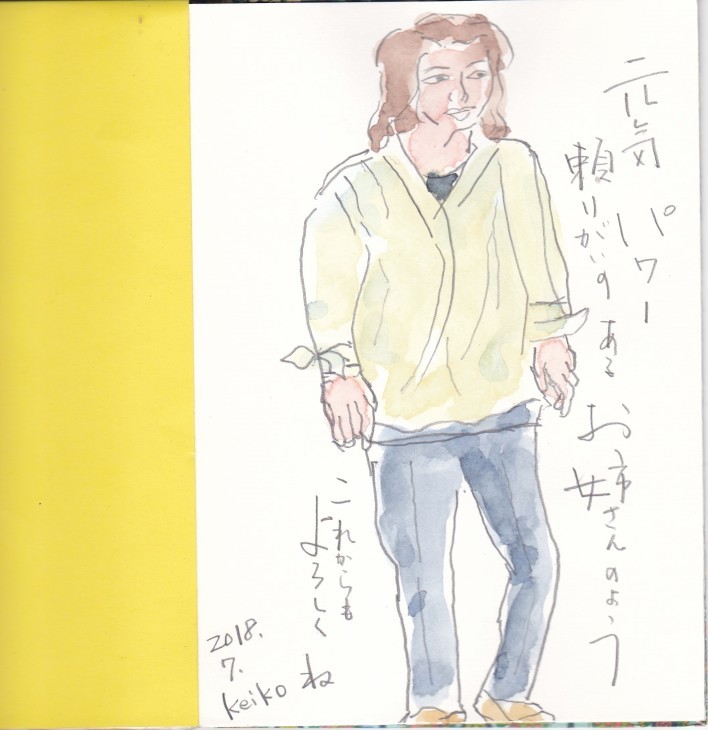 元気 パワー
頼りがいの ある
お姉さんのよう
これからも
よろしく
ね
2018.
7.
keiko